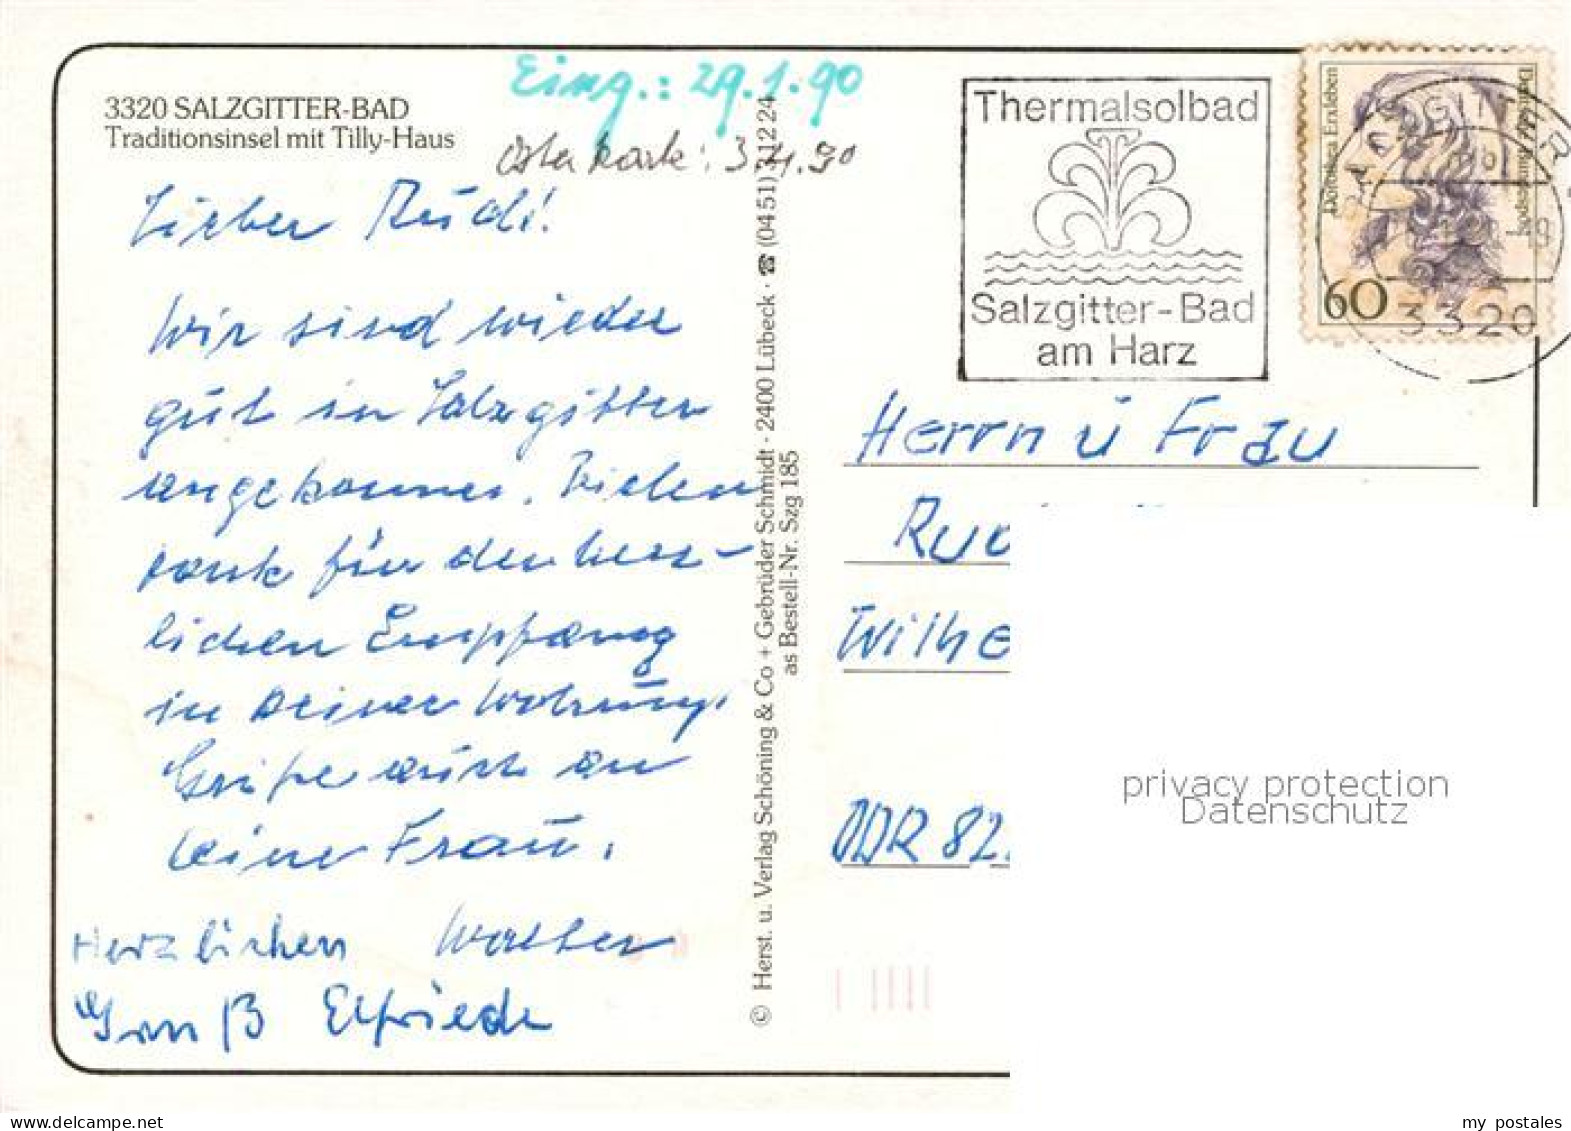 3320 SALZGITTER-BAD
Traditionsinsel mit Tilly-Haus
Eing.: 29.1.90
Osterkarte: 3.4.90
Lieber Rudi!
Wir sind wieder
gut in Salzgitter
angekommen. Vielen
Dank für den herz-
lichen Empfang
in Deiner Wohnung.
Grüße auch an
Deine Frau.
Herzlichen Walter
Gruß Elfriede
© Herst. u. Verlag Schöning & Co + Gebrüder Schmidt · 2400 Lübeck · ☎ (0451) 31224
as Bestell-Nr. Szg 185
Thermalsolbad
Salzgitter-Bad
am Harz
Dorothea Erxleben
Deutsche Bundespost
60
3320
Herrn u Frau
Wilhe
DDR 82
privacy protection
Datenschutz
my postales